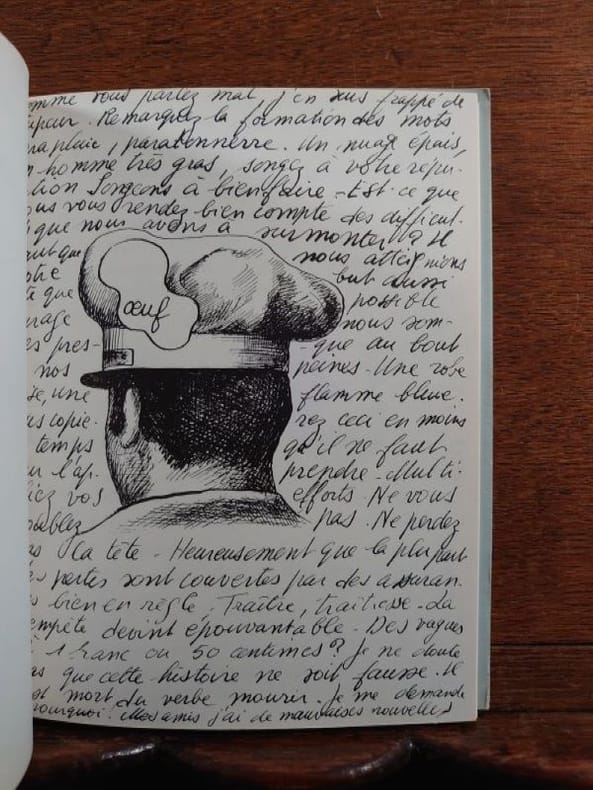 omme vous parlez mal j'en suis frappé de
upeur. Remarquez la formation des mots
raplaie, paratonnerre. Un nuage épais,
n homme très gras, songez à votre répu-
tion Songeons à bien faire - Est-ce que
ous vous rendez bien compte des difficul-
que nous avons à surmonter? Il
aut que nous atteignions
otre but aussi
te que possible
urage nous som-
es pres- que au bout
nos peines. Une robe
e, une flamme bleue.
us copie- rez ceci en moins
temps qu'il ne faut
ur l'ap- prendre - Multi-
liez vos efforts. Ne vous
oublez pas. Ne perdez
as la tête - Heureusement que la plupart
es pertes sont couvertes par des assuran-
s bien en règle. Traître, traîtresse. La
empête devint épouvantable - Des vagues
à 1 franc ou 50 centimes? Je ne doute
as que cette histoire ne soit fausse. Il
st mort du verbe mourir. Je me demande
pourquoi! Mes amis j'ai de mauvaises nouvelles
œuf